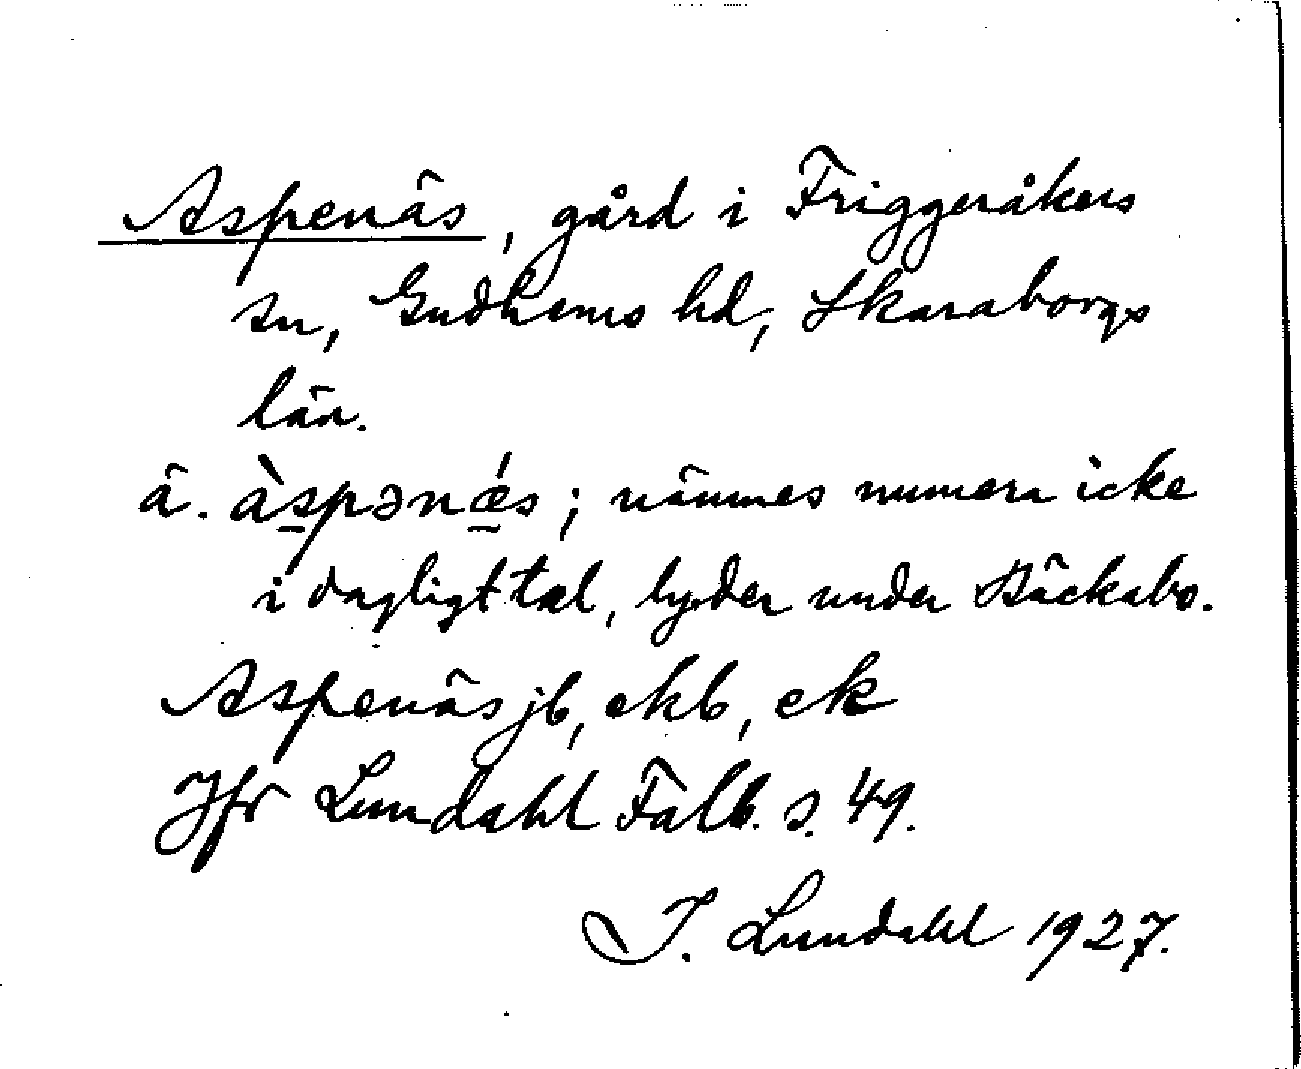 Aspenäs, gård i Friggeråkers
sn, Gudhems hd, Skaraborgs
län.
ä. àspənǽs; nämnes numera icke
i dagligt tal, lyder under Bäckabo.
Aspenäs jb, ekb, ek
Jfr Lundahl Falb. s. 49.
I. Lundahl 1927.